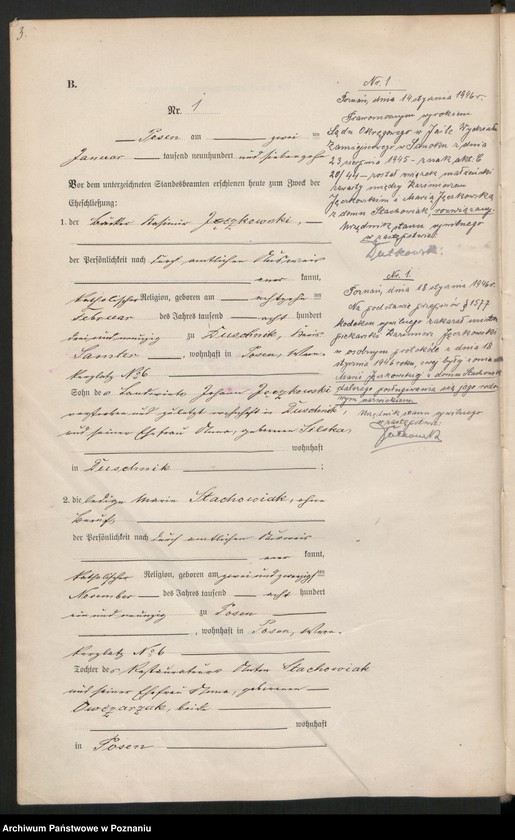 3.
B.
Nr. 1
Posen am zwei ten
Januar tausend neunhundert und siebzehn
Vor dem unterzeichneten Standesbeamten erschienen heute zum Zweck der
Eheschließung:
1. der Kasimir Jęczkowski,
der Persönlichkeit nach durch amtlichen Ausweis
kannt,
katholischer Religion, geboren am achtzehn ten
Februar des Jahres tausend acht hundert
drei und neunzig zu Duschnik, Kreis
Samter, wohnhaft in Posen,
No 6
Sohn des Landwirts Johann Jęczkowski
verstorben und zuletzt wohnhaft in Duschnik,
und seiner Ehefrau Anna, geborenen
wohnhaft
in Duschnik ;
2. die ledige Marie Stachowiak, ohne
Beruf,
der Persönlichkeit nach durch amtlichen Ausweis
kannt,
katholischer Religion, geboren am zwei und zwanzigsten
November des Jahres tausend acht hundert
ein und neunzig zu Posen
, wohnhaft in Posen,
No 6
Tochter des Restaurateurs Anton Stachowiak
und seiner Ehefrau Anna, geborenen
Owczarzak, beide
wohnhaft
in Posen
Nr. 1
Poznań, dnia 14 stycznia 1946 r.
Prawomocnym wyrokiem
Sądu Okręgowego w Jaśle Wydziału
Zamiejscowego w Sanoku z dnia
23 sierpnia 1945 - znak akt. C
20/44 - został związek małżeński
zawarty między Kazimierzem
Jęczkowskim a Marią Jęczkowską
z domu Stachowiak, rozwiązany.
Urzędnik stanu cywilnego
w zastępstwie:
Nr. 1.
Poznań, dnia 18 stycznia 1946 r.
Na podstawie przepisów § 1577
kodeksu cywilnego zakazał
Kazimierz Jęczkowski
w osobnym protokóle z dnia 18
stycznia 1946 roku, swej byłej żonie
Marii Jęczkowskiej z domu Stachowiak
dalszego posługiwania się jego rodo-
wym nazwiskiem.
Urzędnik stanu cywilnego
w zastępstwie:
Archiwum Państwowe w Poznaniu